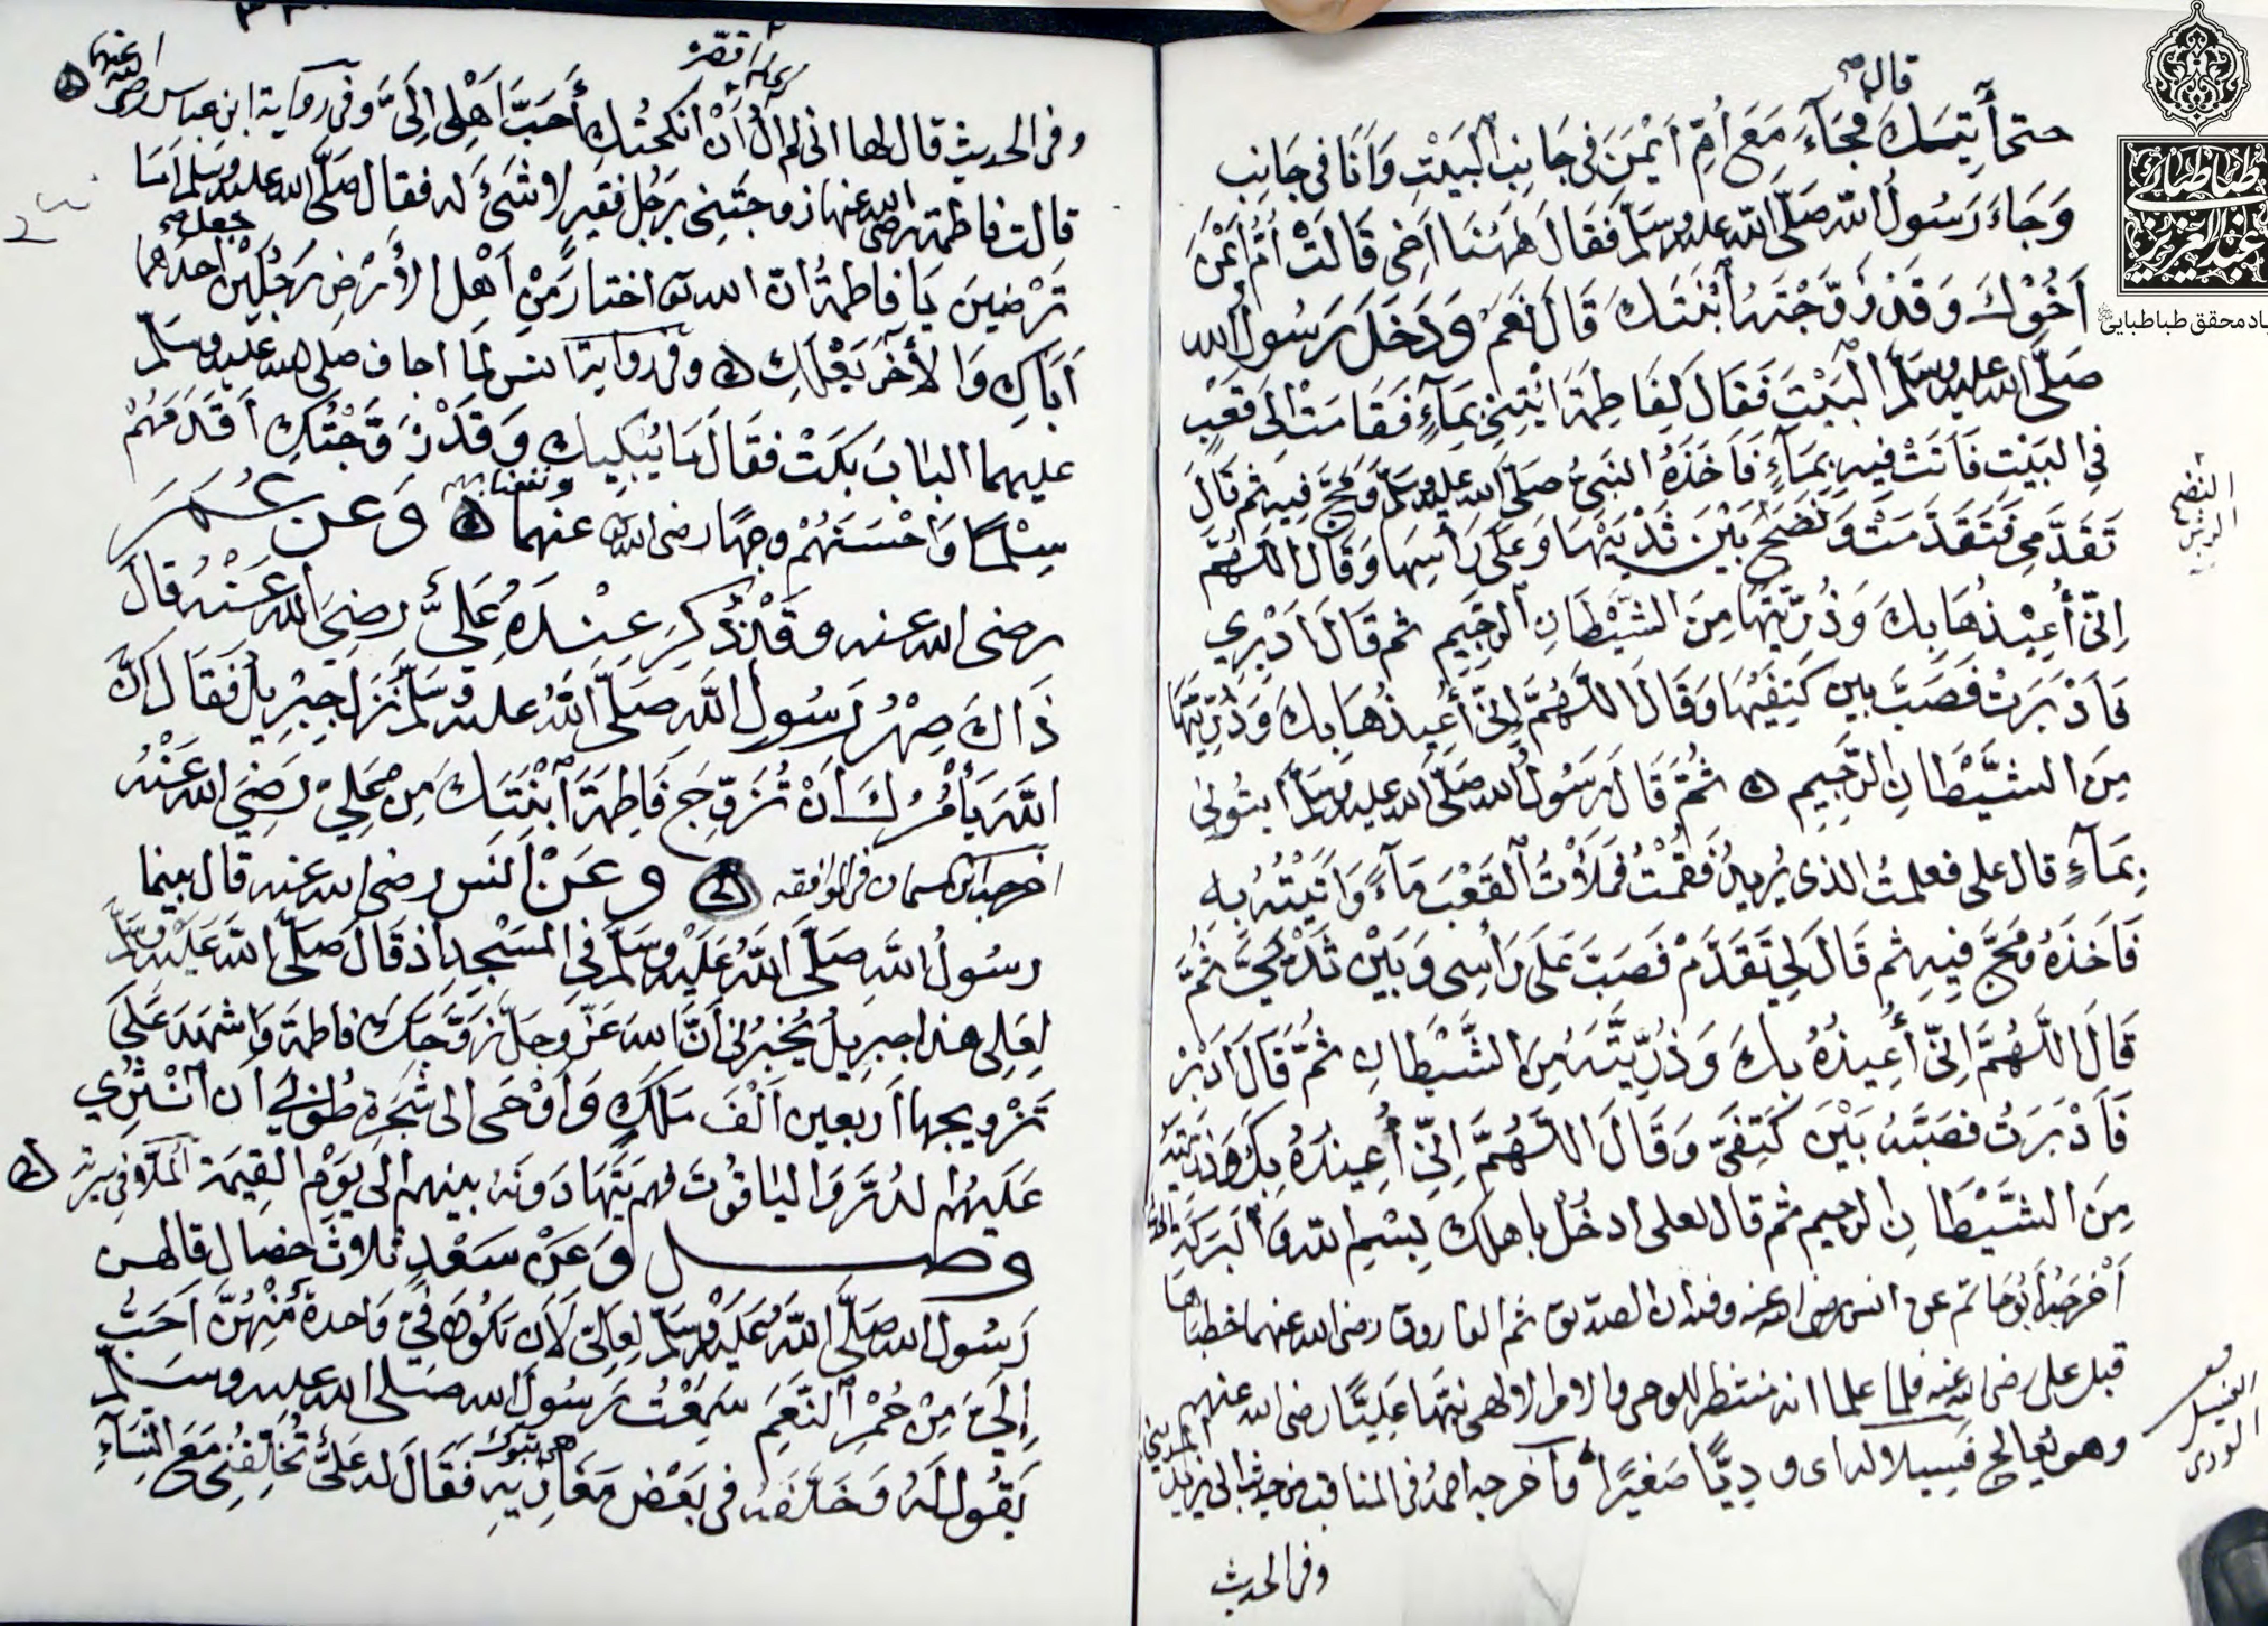 قال
حتى أتيتك فجآء مَعَ أُمِّ اَيْمَنَ فى جَانِبِ البَيْتِ وَاَنَا فى جَانِبٍ
وَجَاءَ رَسُولُ اللّه صَلَّى اللّه عليه وسَلَّم فَقَالَ هَهُنَا اَخِى قَالَتْ اُمُّ اَيْمَنَ
اَخُوْكَ وَقَدْ زَوَّجْتَهُ اَبْنَتَكَ قَالَ نَعَمْ وَدَخَلَ رَسُولُ الله
صَلَّى الله عليه وسَلَّم البَيْتَ فَقَالَ لِفَاطِمَةَ ائْتِينِى بِمَآءٍ فَقَامَتْ اِلَى قَعْبٍ
فِى البَيْتِ فَاَتَتْ فِيهِ بِمَآءٍ فَاَخَذَهُ النَّبِىُّ صَلَّى الله عليه وسَلَّم وَمَجَّ فِيهِ ثم قَالَ
تَقَدَّمِى فَتَقَدَّمَتْ وَنَضَحَ بَيْنَ ثَدْيَيْهَا وَعَلَى رَاسِهَا وَقَالَ اللَّهُمَّ
اِنِّى أُعِيْذُهَا بِكَ وَذُرِّيَّتَهَا مِنَ الشَّيْطَانِ الرَّجِيمِ ثم قَالَ اَدْبِرِي
فَاَدْبَرَتْ فَصَبَّ بين كَتِفَيْهَا وَقَالَ اللَّهُمَّ اِنِّى أُعِيذُهَا بِكَ وَذُرِّيَّتَهَا
مِنَ الشَّيْطَانِ الرَّجِيمِ ثُمَّ قَالَ رَسُولُ الله صَلَّى الله عليه وسَلَّم ايتُونِى
بِمَآءٍ قال على فعلمتُ الذى يُرِيدُ فَقُمْتُ فَمَلَأْتُ القَعْبَ مَآءً وَاَتَيْتُهُ بِهِ
فَاَخَذَهُ وَمَجَّ فِيهِ ثم قَالَ لِى تَقَدَّمْ فَصَبَّ عَلَى رَاسِى وَبَيْنَ ثَدْيَىَّ ثُمَّ
قَالَ اللَّهُمَّ اِنِّى أُعِيذُهُ بِكَ وَذُرِّيَّتَهُ مِنَ الشَّيْطَانِ ثُمَّ قَالَ اَدْبِرْ
فَاَدْبَرْتُ فصَبَّهُ بَيْنَ كَتِفَىَّ وَقَالَ اللَّهُمَّ اِنِّى أُعِيذُهُ بِكَ وَذُرِّيَّتَهُ
مِنَ الشَّيْطَانِ الرجيم ثم قال لعلى ادخُل باهلك بِسْمِ اللّه وَالبَرَكَةِ
اَخْرَجَهُ اَبُو حَاتم عن انس رضى الله عنه وفيه ان الصديق ثم الفاروق رضى الله عنهما خطباها
قبل على رضى الله عنه فلما علما انه منتظر للوحى والامر الالهى نبّها عَلِيًّا رضى الله عنهم
وهو يُعالج فسِيلا له اى وديًّا صَغيرًا وآخرجه احمدُ فى المناقب من حديث ابى يزيد المدينى
وفى الحديث
النضح
الرش
الفسيل
الودى
قال
وفى الحديث قال لها انى لم آلُ أَنْ أنكحتُكِ أَحَبَّ اَهْلِى اِلَىَّ وفى رواية ابن عباس رضى الله عنهما
قالت فاطمة رضى الله عنها زوجتَنِى بِرَجُلٍ فقيرٍ لا شَىْءَ له فقال صَلَّى الله عليه وسلم اَمَا
جعل
تَرْضَينَ يَا فاطمةُ انّ الله تع اختارَ مِنْ اَهْلِ الاَرْضِ رَجُلَيْن احدهما
اَبَاكِ وَالاخَرَ بَعْلَكِ وفى رواية انس لَمّا اجاف صلى الله عليه وسلّم
عليهما البابَ بَكَتْ فقالَ مَا يُبْكِيكِ وَقَدْ زَوَّجْتُكِ اَقْدَمَهُمْ
سِلْمًا وَاَحْسَنَهُمْ وجهًا رضى الله عنهما ونفعنا بهم وَعن عُمَرَ
رضى الله عنه وقَدْ ذُكِرَ عِنْدَهُ عَلىٌّ رضِىَ الله عَنْهُ قَالَ
ذَاكَ صِهْرُ رَسُولِ اللّهِ صَلَّى اللهُ عليه وسَلَّم نَزَلَ جِبْرِيلُ فَقَالَ اِنَّ
اللّهَ يَأْمُرُكَ اَنْ تُزَوِّجَ فَاطِمَةَ اَبْنَتَكَ مِن عَلِىّ رَضِىَ الله عَنْهُ
اخرجه ابن السمان فى الموافقه وعَنْ اَنَس رضى الله عنه قال بينما
رسُولُ اللهِ صَلَّى اللهُ عَلَيْهِ وسَلَّم فى المسْجِدِ اِذ قَالَ صَلَّى الله عَلَيْه وسَلَّم
لِعَلِى هذا جبريلُ يُخْبِرُنى اَنَّ الله عَزَّ وجلَّ زَوَّجَكَ فاطمةَ وَاَشهَدَ عَلَى
تَزْويجها اَربعين اَلْفَ مَلَكٍ وَاَوْحَى الى شَجَرةِ طُوبَى اَن اَنْثُرِي
عَلَيهم الدُّرَّ وَاليَاقُوتَ فهم يتهَادَونَهُ بينهم الى يَوْمِ القِيمَة الملّا فى سيرته
وصل وَعَنْ سَعْدٍ ثلاثُ خصال قالهن
رَسُول الله صَلَّى اللّهُ عَلَيْهِ وسَلَّم لِعَلِىّ لَاَن تكُونَ فِىَّ وَاحدةٌ مِنْهُنَّ اَحَبُّ
اِلَىَّ مِنْ حُمْرِ النَّعَمِ سَمِعْتُ رَسُولَ الله صَلى الله عليه وسلّم
هى تبوك
يَقُولُ لَهُ وَخَلَّفَهُ فى بَعْضِ مَغَازِيهِ فَقَالَ له عَلىٌّ تُخَلِّفُنِى مَعَ النِّسَآءِ
طباطبائى
عبد العزيز
محقق طباطبایی